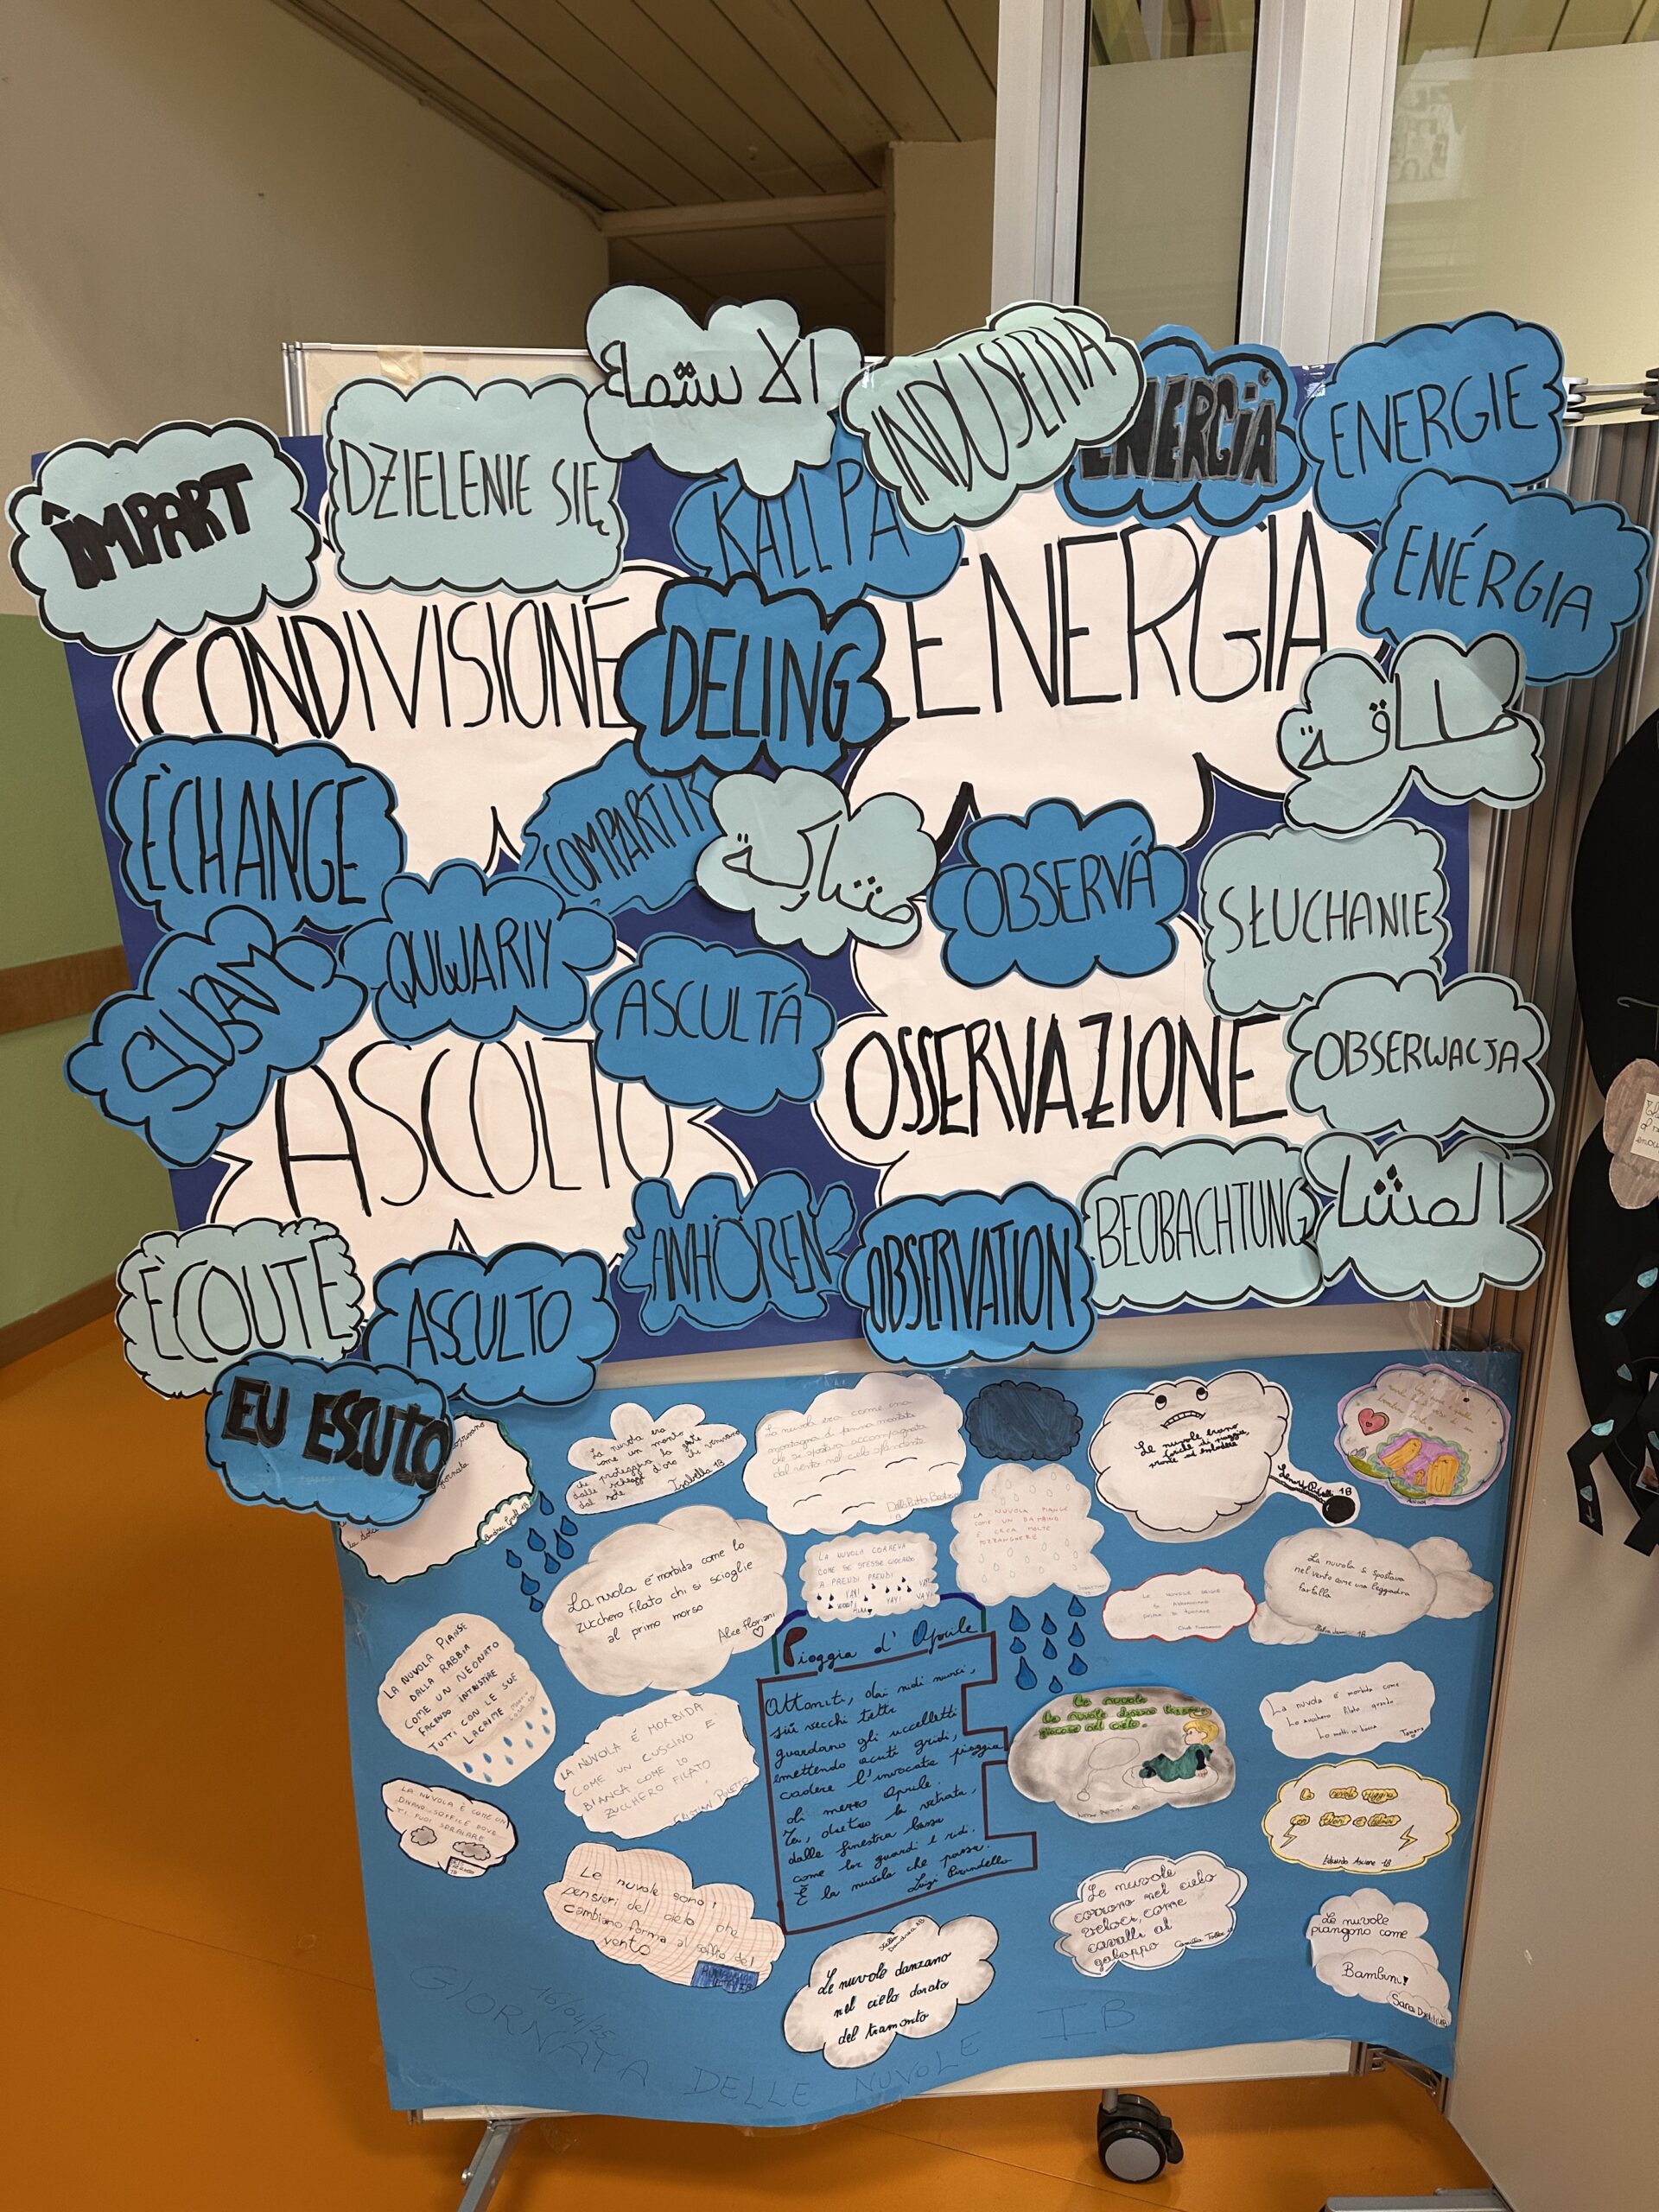 الاستماع
INDUSETIIA
ENERGIA
ENERGIE
ÎMPART
DZIELENIE SIĘ
KALLPA
ENÉRGIA
CONDIVISIONE
DELING
ENERGIA
طاقة
ÉCHANGE
COMPARTIR
مشاركة
OBSERVÁ
SŁUCHANIE
QUWARIY
ASCULTÁ
OSSERVAZIONE
OBSERWACJA
ASCOLTO
ÉCOUTE
ASCULTO
ANHÖREN
OBSERVATION
BEOBACHTUNG
EU ESCUTO
La nuvola era
come un manto
che protegge la
dalle schegge d'oro
del sole
Isabella 1B
La nuvola era come una
montagna di panna montata
che si spostava accompagnata
dal vento nel cielo
LA NUVOLA PIANGE
COME UN BAMBINO
E CREA MOLTE
Le nuvole erano
cariche di pioggia,
pronte ad esplodere
La nuvola è morbida come lo
zucchero filato chi si scioglie
al primo morso
Alice Floriani
LA NUVOLA CORREVA
COME SE STESSE GIOCANDO
A PRENDI PRENDI
YAY!
La nuvola si spostava
nel vento come una leggiadra
farfalla
LA NUVOLA PIANSE
DALLA RABBIA
COME UN NEONATO
FACENDO INTRISTIRE
TUTTI CON LE SUE
LACRIME
Pioggia d' Aprile
Attoniti, dai nidi nuovi,
sui vecchi tetti
guardano gli uccelletti
emettendo acuti gridi,
cadere l'invocata pioggia
di mezzo Aprile.
Tu, dietro la vetrata,
dalla finestra bassa
come lor guardi e ridi.
È la nuvola che passa.
Luigi Pirandello
LA NUVOLA È MORBIDA
COME UN CUSCINO E
BIANCA COME LO
ZUCCHERO FILATO
La nuvola è morbida come
lo zucchero filato
Tamara
LA NUVOLA È COME UN
DIVANO SOFFICE DOVE
TI PUOI SDRAIARE
Eduardo 1B
Le nuvole sono i
pensieri del cielo che
cambiano forma al soffio del
vento
Le nuvole
corrono nel cielo
veloci, come
cavalli al
galoppo
Camilla
Le nuvole
piangono come
Bambini!
Sara
Le nuvole danzano
nel cielo dorato
del tramonto
16/04/25
GIORNATA DELLE NUVOLE IB